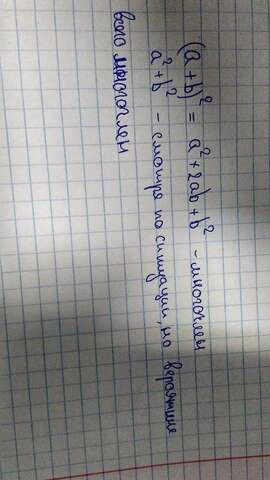 (a+b)² = a²+2ab+b² - многочлен
a²+b² - смотря по ситуации, но вероятнее
всего многочлен